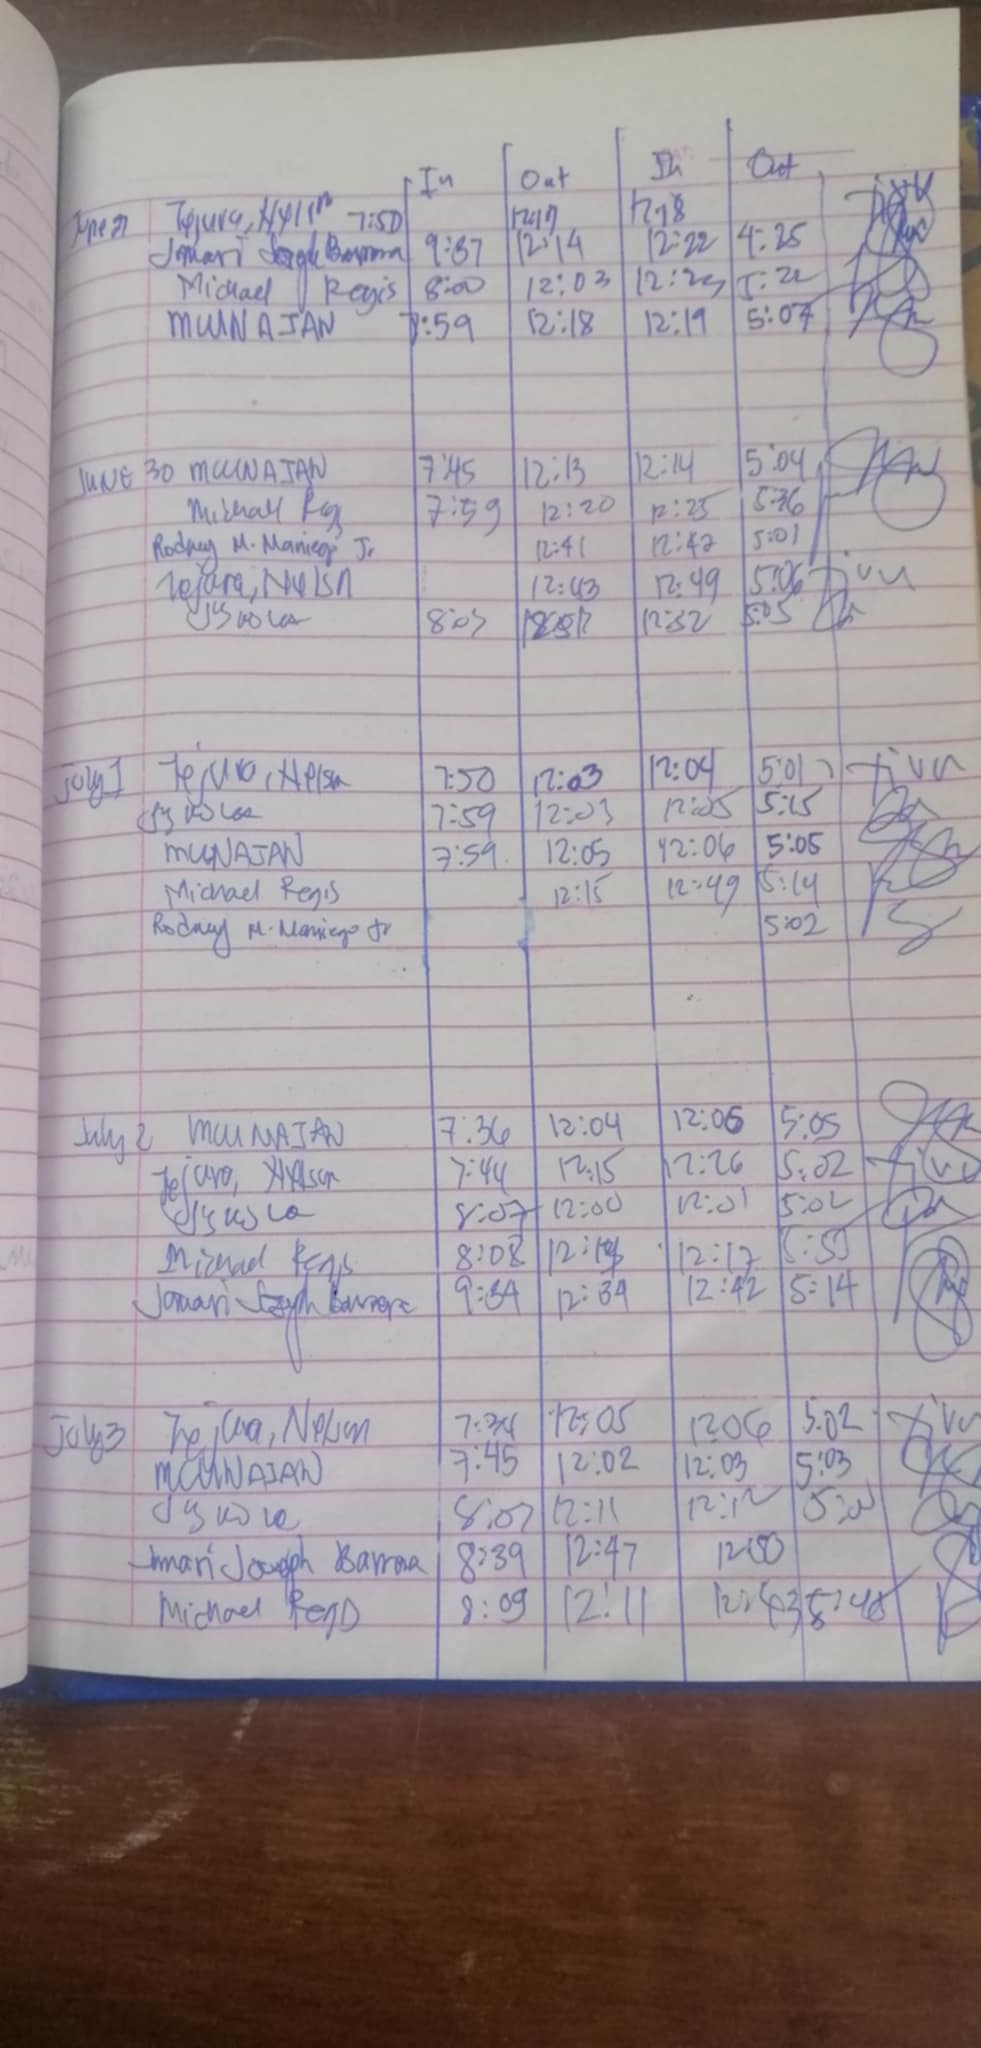 In Out In Out
7:50 12:18
Jomari Joseph Barrera 9:37 12:14 12:22 4:25
Michael Regis 8:00 12:03 12:23 5:22
MUNAJAN 7:59 12:18 12:19 5:07
JUNE 30 MUNAJAN 7:45 12:13 12:14 5:04
Michael Reg 7:59 12:20 12:25 5:36
Rodney M. Maniego Jr 12:41 12:42 5:01
Tejura, Nelson 12:43 12:49 5:06
8:03 12:32 5:05
July 1 Tejura, Nelson 7:50 12:03 12:04 5:01
7:59 12:03 12:05 5:15
MUNAJAN 7:59 12:05 12:06 5:05
Michael Regis 12:15 12:49 5:14
Rodney M. Maniego Jr 5:02
July 2 MUNAJAN 7:36 12:04 12:06 5:05
Tejura, Nelson 7:44 12:15 12:26 5:02
8:07 12:00 12:01 5:02
Michael Regis 8:08 12:17
Jomari Joseph Barrera 9:34 12:34 12:42 5:14
July 3 Tejura, Nelson 7:34 12:05 1206 5:02
MUNAJAN 7:45 12:02 12:03 5:03
8:07 12:11 12:12
Jomari Joseph Barrera 8:39 12:47 12:50
Michael Regis 8:09 12:11 5:48